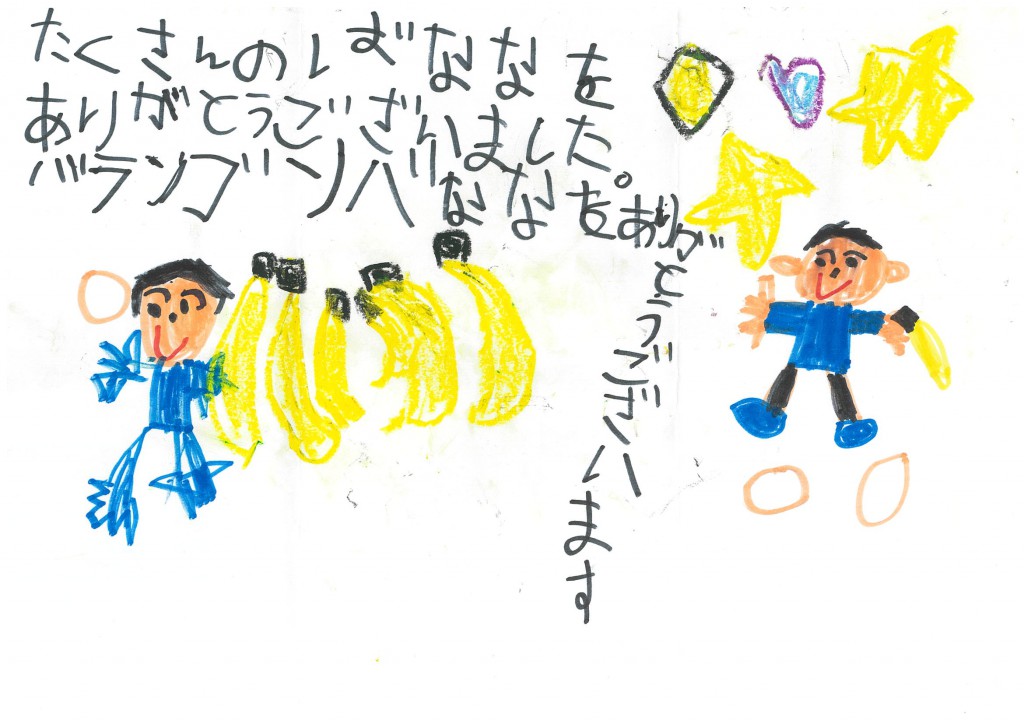 たくさんのばななを
ありがとうございました。
バランゴンバななをありがとうございます